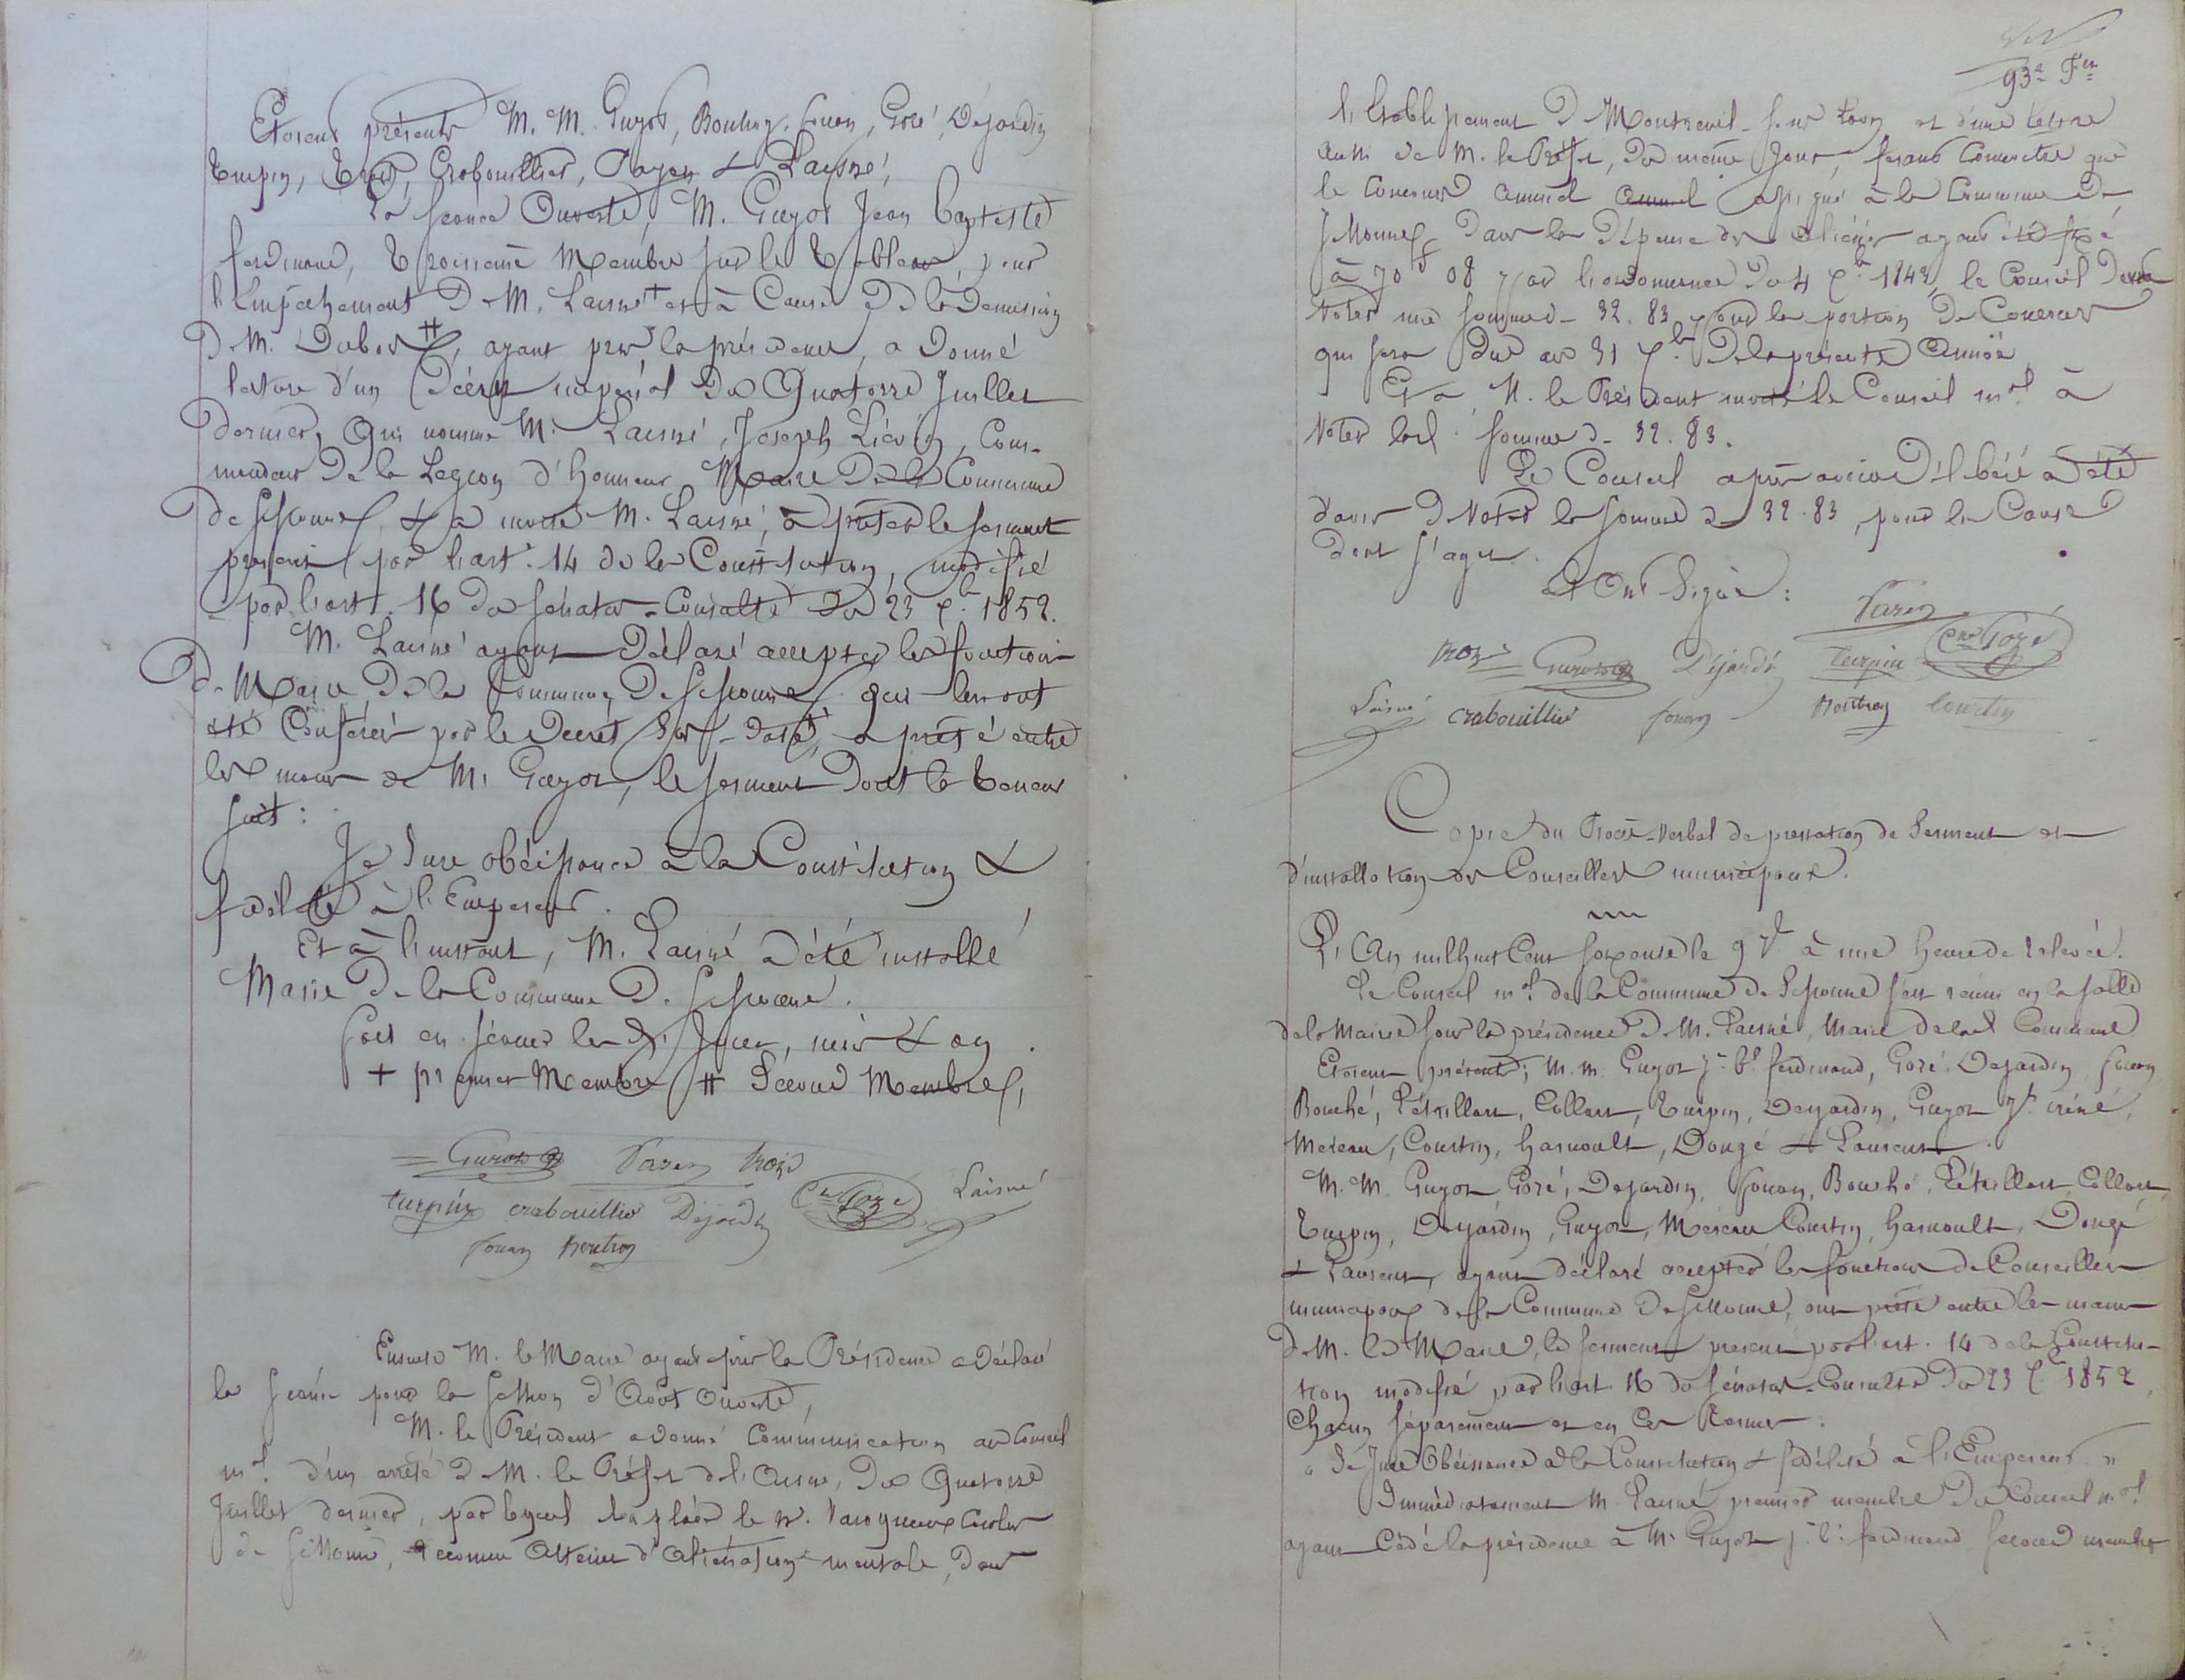 Etaient présents M. M. Guyot, Boutroy, fouan, Goré, Déjardin
Turpin, Trois, Crabouillier, Payen & Laisné,
La séance Ouverte, M. Guyot Jean Baptiste
ferdinand, troisième Membre sur le tableau, pour
l'Empêchement de M. Laisné + et à Cause de la Démission
de M. Dubois #, ayant pris la présidence, a donné
lecture d'un Décret impérial du Quatorze Juillet
dernier, Qui nomme M. Laisné, Joseph Liévin, Com-
mandeur de la Legion d'honneur Maire de la Commune
de Sissonne, & a invité M. Laisné, à prêter le serment
prescrit par l'art. 14 de la Constitution, modifié
par l'art. 16 du Sénatus-Consulte du 23 Xbre 1852.
M. Laisné ayant déclaré accepter les fonctions
de Maire de la Commune de Sissonne, qui lui ont
été Conférées par le Décret sus-daté, a prêté entre
les mains de M. Guyot, le serment dont la teneur
suit :
Je Jure obéissance à la Constitution &
fidélité à l'Empereur.
Et à l'instant, M. Laisné a été installé
Maire de la Commune de Sissonne.
fait en séance les dits Jour, mois & an.
+ premier Membre # Second Membre,
Guyot Payen trois
turpin crabouillier Dejardin Goré Laisné
fouan Boutroy
Ensuite M. le Maire ayant pris la Présidence a déclaré
la séance pour la session d'Août Ouverte,
M. le Président a donné Communication au Conseil
mal. d'un arrêté de M. le Préfet de l'Aisne, du Quatorze
Juillet dernier, par lequel a placé le Sr.
de Sissonne, reconnu Atteint d'aliénation mentale, dans
93e Fet
l'Etablissement de Montreuil-sous-Laon et d'une lettre
aussi de M. le Préfet, du même Jour, faisant Connaitre que
le Concours annuel annuel assigné à la Commune de
Sissonne dans la Dépense des aliénés ayant été fixé
à 70f 08 par l'ordonnance du 4 Xbre 1842, le Conseil devra
Voter une somme de 32.83 pour la portion de Concours
qui sera due au 31 Xbre de la présente Année
Et a, M. le Président invité le Conseil mal. à
Voter lad. somme de 32.83.
Le Conseil après avoir délibéré a été
d'avis de Voter la somme de 32.83, pour la Cause
dont s'agit.
Et Ont Signé :
Payen
trois Guyot Déjardin turpin Goré
Laisné crabouillier fouan Boutroy Courtin
Copie du Procès-Verbal de prestation de Serment et
d'installation des Conseillers municipaux.
L'An mil huit Cent soixante le 9 7bre à une heure de relevée.
Le Conseil mal. de la Commune de Sissonne s'est réuni en la salle
de la Mairie sous la présidence de M. Laisné, Maire de lad. Commune
Etaient présents ; M. M. Guyot Jn. Bte. ferdinand, Goré, Dejardin, fouan,
Bouché, Létrillart, Collart, Turpin, Dejardin, Guyot Jh. iréné,
Méreau, Courtin, harnoult, Dougé & Laurent.
M. M. Guyot, Goré, Dejardin, fouan, Bouché, Létrillart, Collart,
Turpin, Dejardin, Guyot, Méreau Courtin, harnoult, Dougé
& Laurent, ayant déclaré accepter les fonctions de Conseillers
municipaux de la Commune de Sissonne, ont prêté entre les mains
de M. le Maire, le serment prescrit par l'art. 14 de la Constitu-
tion modifié par l'art. 16 du Sénatus-Consulte du 23 Xbre 1852,
Chacun séparément et en Ces termes :
« Je Jure Obéissance à la Constitution & fidélité à l'Empereur. »
Immédiatement M. Laisné premier membre du Conseil mal
ayant Cédé la présidence à M. Guyot Jn. Bte. ferdinand second membre